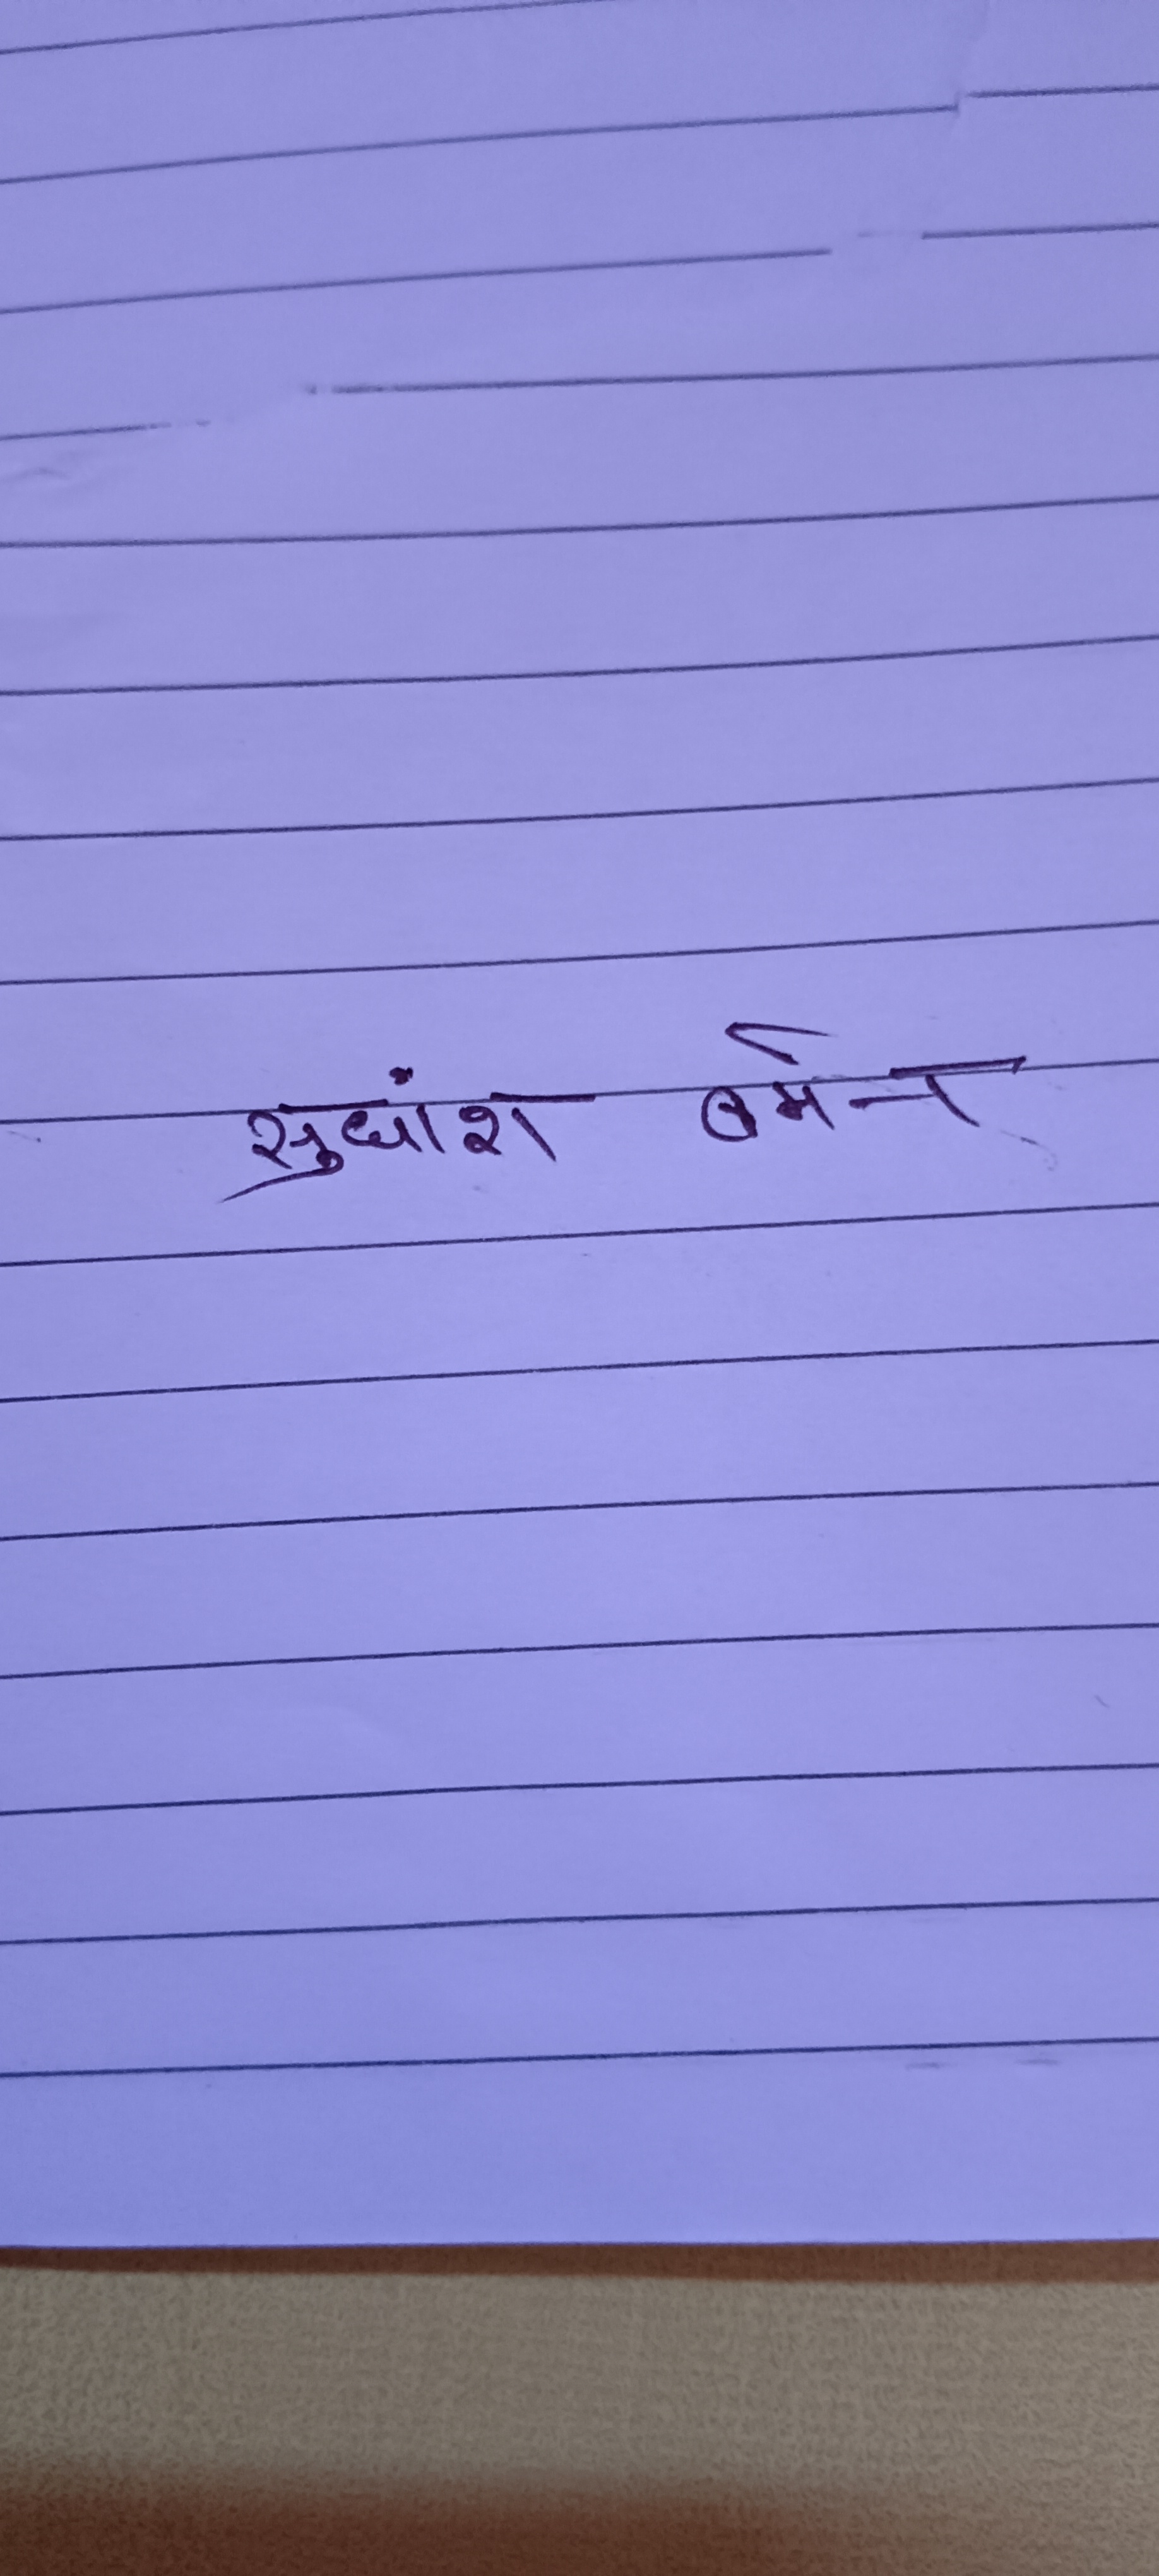 सुधांश बर्मन